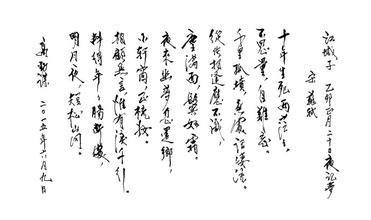 江城子 乙卯正月二十日夜记梦
宋 苏轼
十年生死两茫茫。
不思量，自难忘。
千里孤坟，无处话凄凉。
纵使相逢应不识，
尘满面，鬓如霜。
夜来幽梦忽还乡，
小轩窗，正梳妆。
相顾无言，惟有泪千行。
料得年年肠断处，
明月夜，短松冈。
二〇一五年六月九日